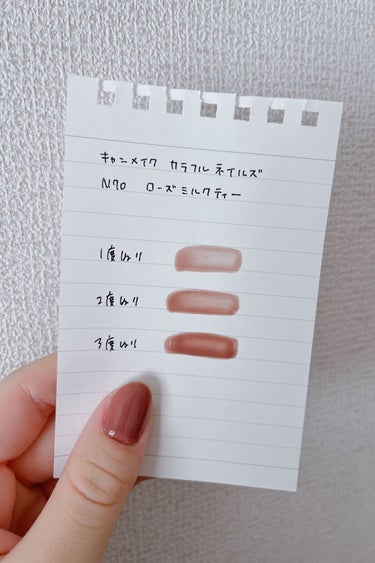 キャンメイク カラフル ネイルズ
N70 ローズミルクティー
1度ぬり
2度ぬり
3度ぬり